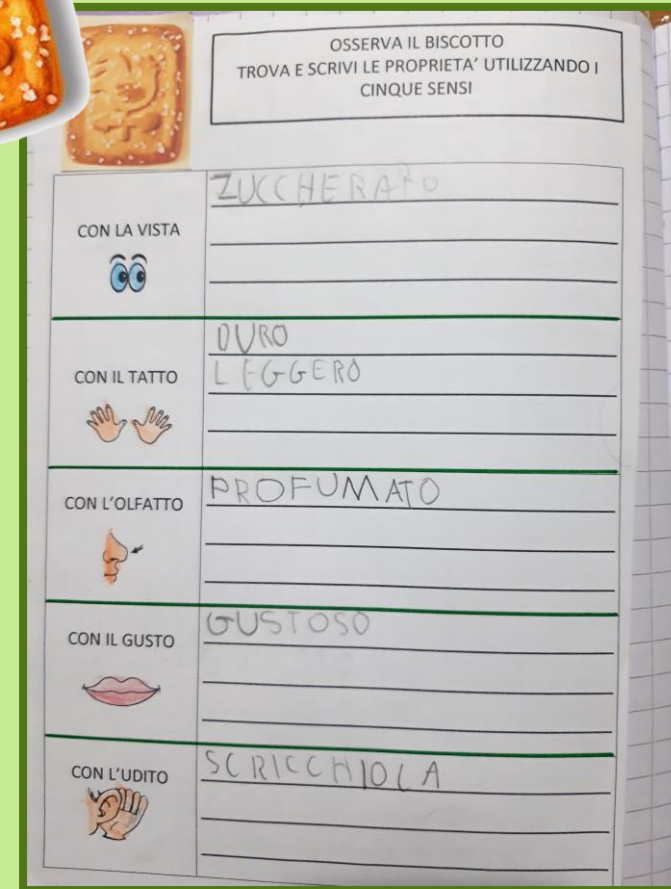 OSSERVA IL BISCOTTO
TROVA E SCRIVI LE PROPRIETA' UTILIZZANDO I
CINQUE SENSI
CON LA VISTA
ZUCCHERATO
CON IL TATTO
DURO
LEGGERO
CON L'OLFATTO
PROFUMATO
CON IL GUSTO
GUSTOSO
CON L'UDITO
SCRICCHIOLA